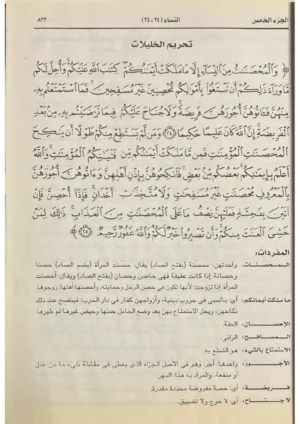 الجزء الخامس
النساء (٢٤ : ٢٥)
٨٢٣
تحريم الخليلات
﴿ وَالْمُحْصَنَاتُ مِنَ النِّسَاءِ إِلَّا مَا مَلَكَتْ أَيْمَانُكُمْ كِتَابَ اللَّهِ عَلَيْكُمْ وَأُحِلَّ لَكُم
مَّا وَرَاءَ ذَٰلِكُمْ أَن تَبْتَغُوا بِأَمْوَالِكُم مُّحْصِنِينَ غَيْرَ مُسَافِحِينَ فَمَا اسْتَمْتَعْتُم بِهِ
مِنْهُنَّ فَآتُوهُنَّ أُجُورَهُنَّ فَرِيضَةً وَلَا جُنَاحَ عَلَيْكُمْ فِيمَا تَرَاضَيْتُم بِهِ مِن بَعْدِ
الْفَرِيضَةِ إِنَّ اللَّهَ كَانَ عَلِيمًا حَكِيمًا ﴿٢٤﴾ وَمَن لَّمْ يَسْتَطِعْ مِنكُمْ طَوْلًا أَن يَنكِحَ
الْمُحْصَنَاتِ الْمُؤْمِنَاتِ فَمِن مَّا مَلَكَتْ أَيْمَانُكُم مِّن فَتَيَاتِكُمُ الْمُؤْمِنَاتِ وَاللَّهُ
أَعْلَمُ بِإِيمَانِكُم بَعْضُكُم مِّن بَعْضٍ فَانكِحُوهُنَّ بِإِذْنِ أَهْلِهِنَّ وَآتُوهُنَّ أُجُورَهُنَّ
بِالْمَعْرُوفِ مُحْصَنَاتٍ غَيْرَ مُسَافِحَاتٍ وَلَا مُتَّخِذَاتِ أَخْدَانٍ فَإِذَا أُحْصِنَّ فَإِنْ
أَتَيْنَ بِفَاحِشَةٍ فَعَلَيْهِنَّ نِصْفُ مَا عَلَى الْمُحْصَنَاتِ مِنَ الْعَذَابِ ذَٰلِكَ لِمَنْ
خَشِيَ الْعَنَتَ مِنكُمْ وَأَن تَصْبِرُوا خَيْرٌ لَّكُمْ وَاللَّهُ غَفُورٌ رَّحِيمٌ ﴿٢٥﴾
المفردات:
المحصنات: واحدتهن: محصنة (بفتح الصاد) يقال: حصنت المرأة (بضم الصاد) حصنا
وحصانة: إذا كانت عفيفة فهى حاصن وحصان (بفتح الصاد) ويقال: أحصنت
المرأة إذا تزوجت؛ لأنها تكون فى حصن الرجل وحمايته، وأحصنها أهلها: زوجوها.
ما ملكت أيمانكم: أى: بالسبى فى حروب دينية، وأزواجهن كفار فى دار الحرب؛ فينفسخ عند ذلك
نكاحهن، ويحل الاستمتاع بهن بعد وضع الحامل حملها وحيض غيرها ثم طهرها.
الإحصان: العفة.
المسافح: الزانى.
الاستمتاع بالشىء: هو التمتع به.
الأجور: واحدها أجر، وهو فى الأصل الجزاء الذى يعطى فى مقابلة شىء ما من عمل
أو منفعة، والمراد به هنا المهر.
فريضة: أى: حصة مفروضة محددة مقدرة.
لا جناح: أى: لا حرج ولا تضييق.